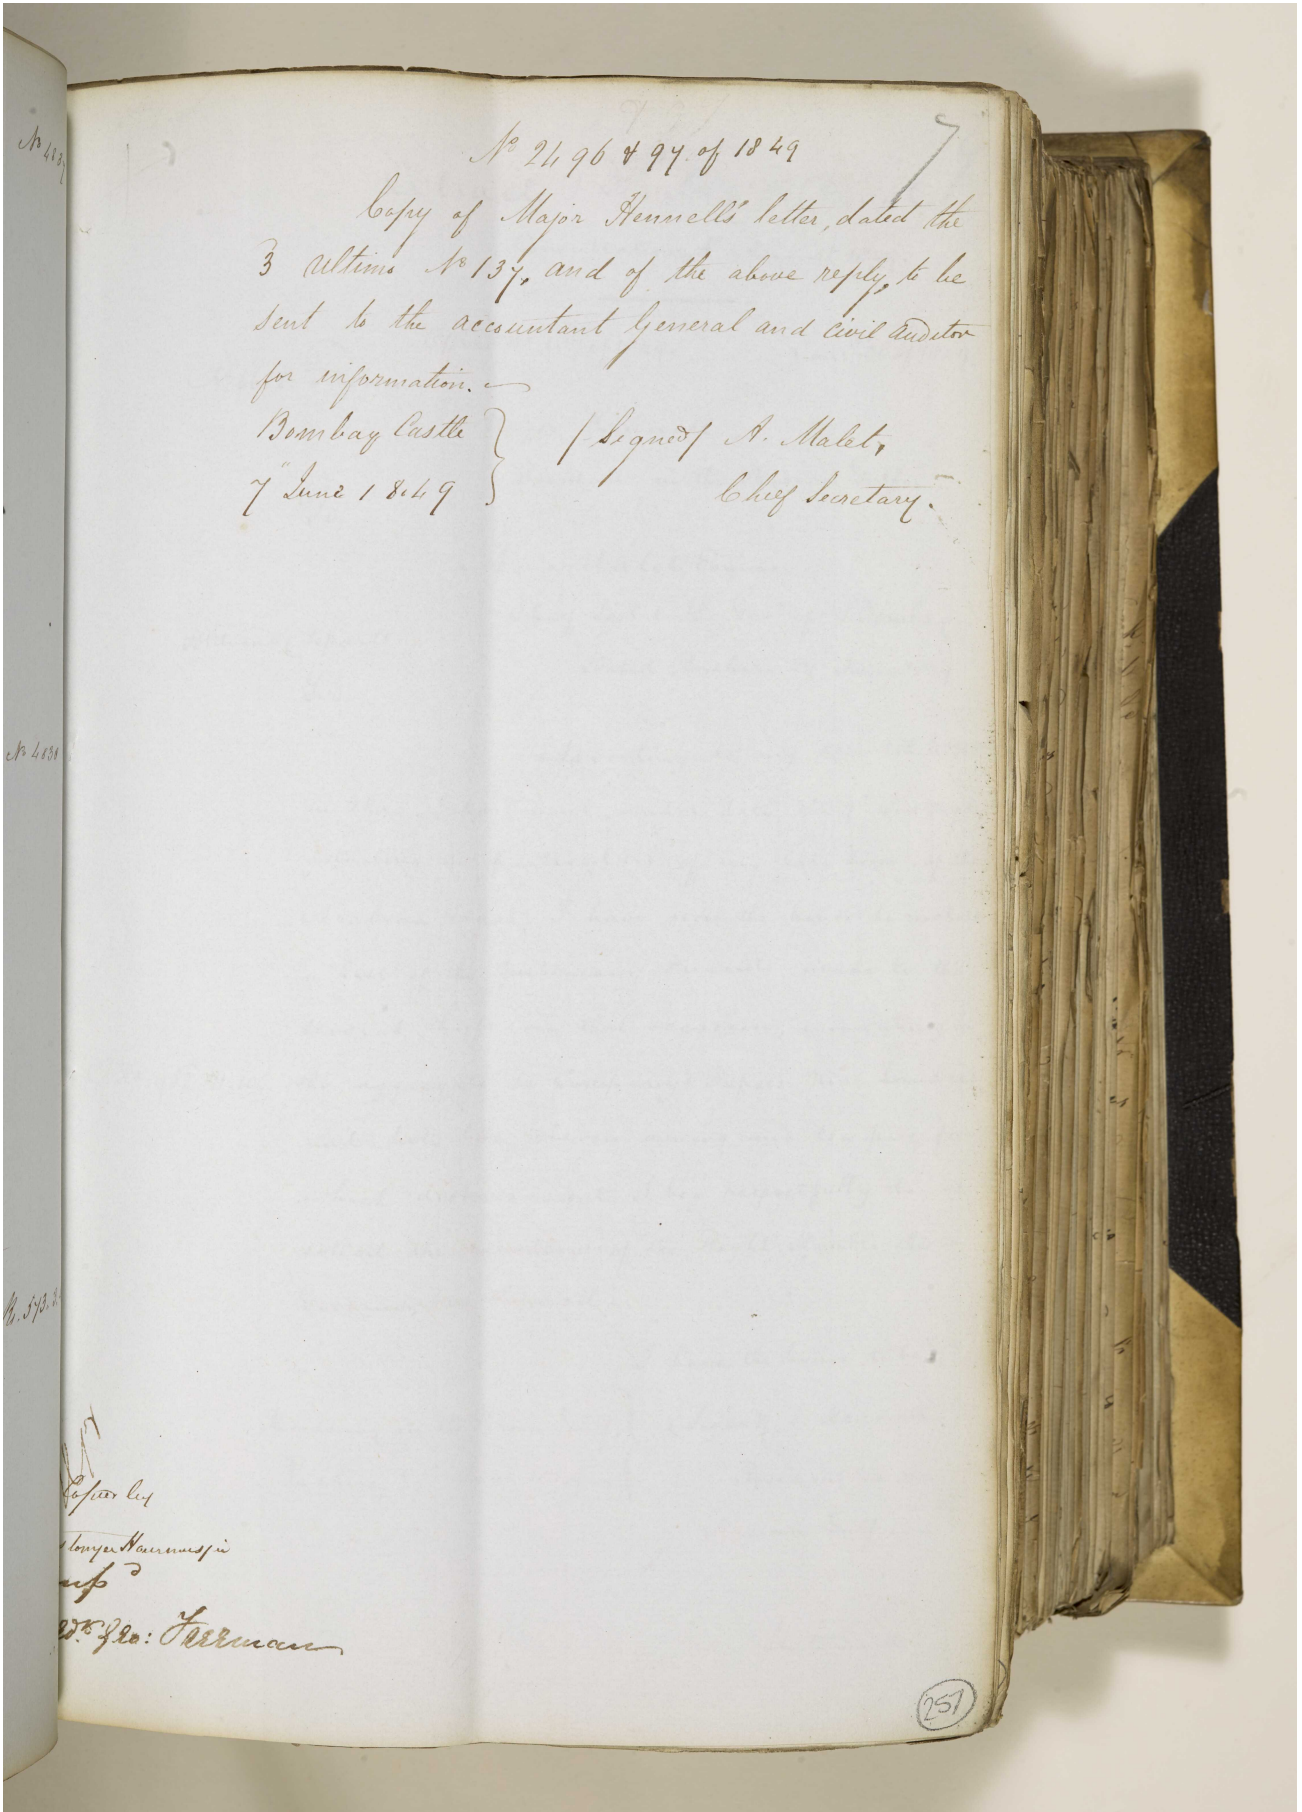 7
No 2496 & 97 of 1849
Copy of Major Hennell's letter, dated the
3 Ultimo No 137, and of the above reply, to be
sent to the accountant General and Civil Auditor
for information.
Bombay Castle
7 June 1849
/Signed/ A. Malet,
Chief Secretary.
No 4838
Copied by
Hourmusjee
Geo: Freeman
257